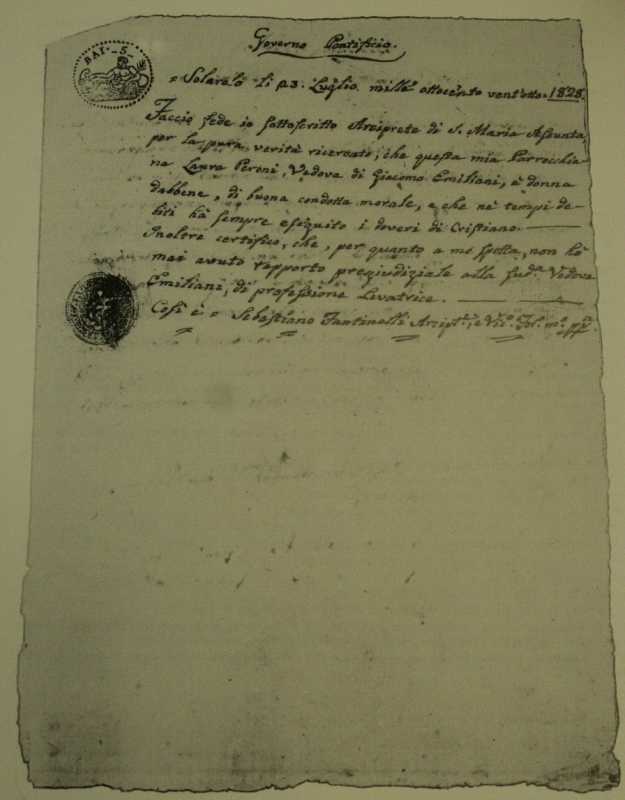 BAI. 5
Governo Pontificio.
= Solarolo li 23. Luglio mille ottocento vent'otto. 1828.
Faccio fede io sottoscritto Arciprete di S. Maria Assunta,
per la pura verità ricercato, che questa mia Parrocchia-
na Laura Peroni, Vedova di Giacomo Emiliani, è donna
dabbene, di buona condotta morale, e che ne' tempi de-
biti hà sempre eseguito i doveri di Cristiano.
Inoltre certifico, che, per quanto a me spetta, non hò
mai avuto rapporto pregiudiziale alla sud.a Vedova
Emiliani, di professione Levatrice.
Così è = Sebastiano Fantinelli Arcipt.e, e Vic.o For. m.o pp.a